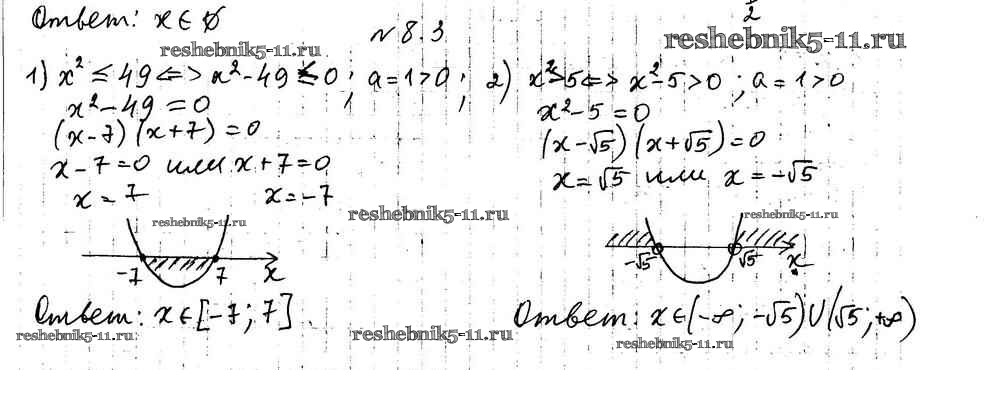 Ответ: x ∈ ∅
1/2
reshebnik5-11.ru
reshebnik5-11.ru
№ 8.3
1) x² ≤ 49 <=> x² - 49 ≤ 0; a = 1 > 0;
x² - 49 = 0
(x - 7)(x + 7) = 0
x - 7 = 0 или x + 7 = 0
x = 7 x = -7
reshebnik5-11.ru
reshebnik5-11.ru
-7 7 x
Ответ: x ∈ [-7; 7]
reshebnik5-11.ru
reshebnik5-11.ru
2) x² > 5 <=> x² - 5 > 0; a = 1 > 0
x² - 5 = 0
(x - √5)(x + √5) = 0
x = √5 или x = -√5
reshebnik5-11.ru
-√5 √5 x
Ответ: x ∈ (-∞; -√5) U (√5; +∞)
reshebnik5-11.ru